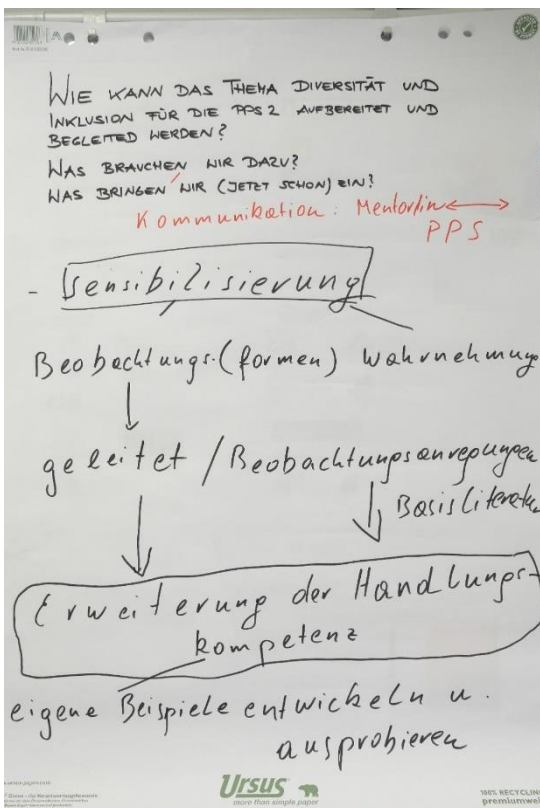 WIE KANN DAS THEMA DIVERSITÄT UND
INKLUSION FÜR DIE PPS 2 AUFBEREITET UND
BEGLEITED WERDEN?
WAS BRAUCHEN WIR DAZU?
WAS BRINGEN WIR (JETZT SCHON) EIN?
Kommunikation: Mentor/in
PPS
- Sensibilisierung
Beobachtungs-(formen) Wahrnehmung
geleitet / Beobachtungsanregungen
Basisliteratur
Erweiterung der Handlungs-
kompetenz
eigene Beispiele entwickeln u.
ausprobieren
Ursus
more than simple paper
100% RECYCLIN
premiumwe